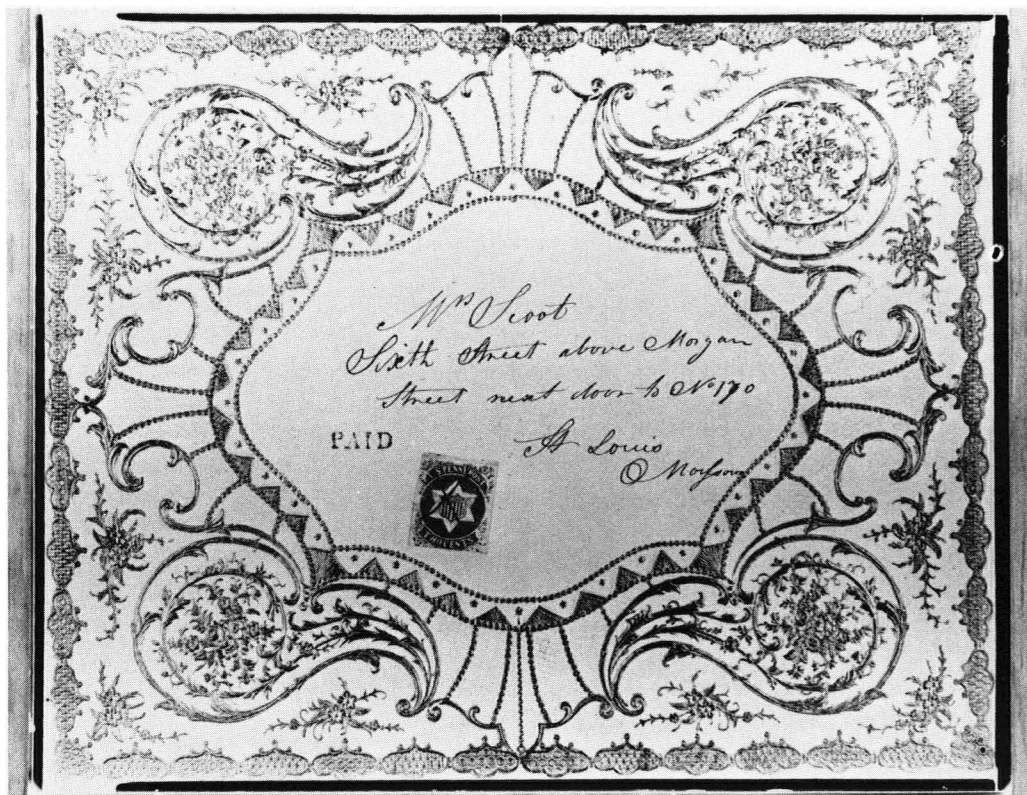 Mrs Scoot
Sixth Street above Morgan
Street next door to No 190
PAID
St Louis